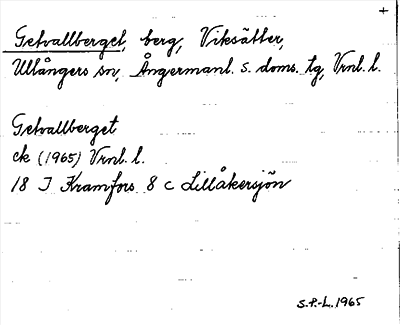 +
Getvallberget, berg, Viksätter,
Ullångers sn, Ångermanl. s. doms. tg, Vrnl. l.
Getvallberget
ek (1965) Vrnl. l.
18 I Kramfors 8 c Lillåkersjön
S.P.-L. 1965